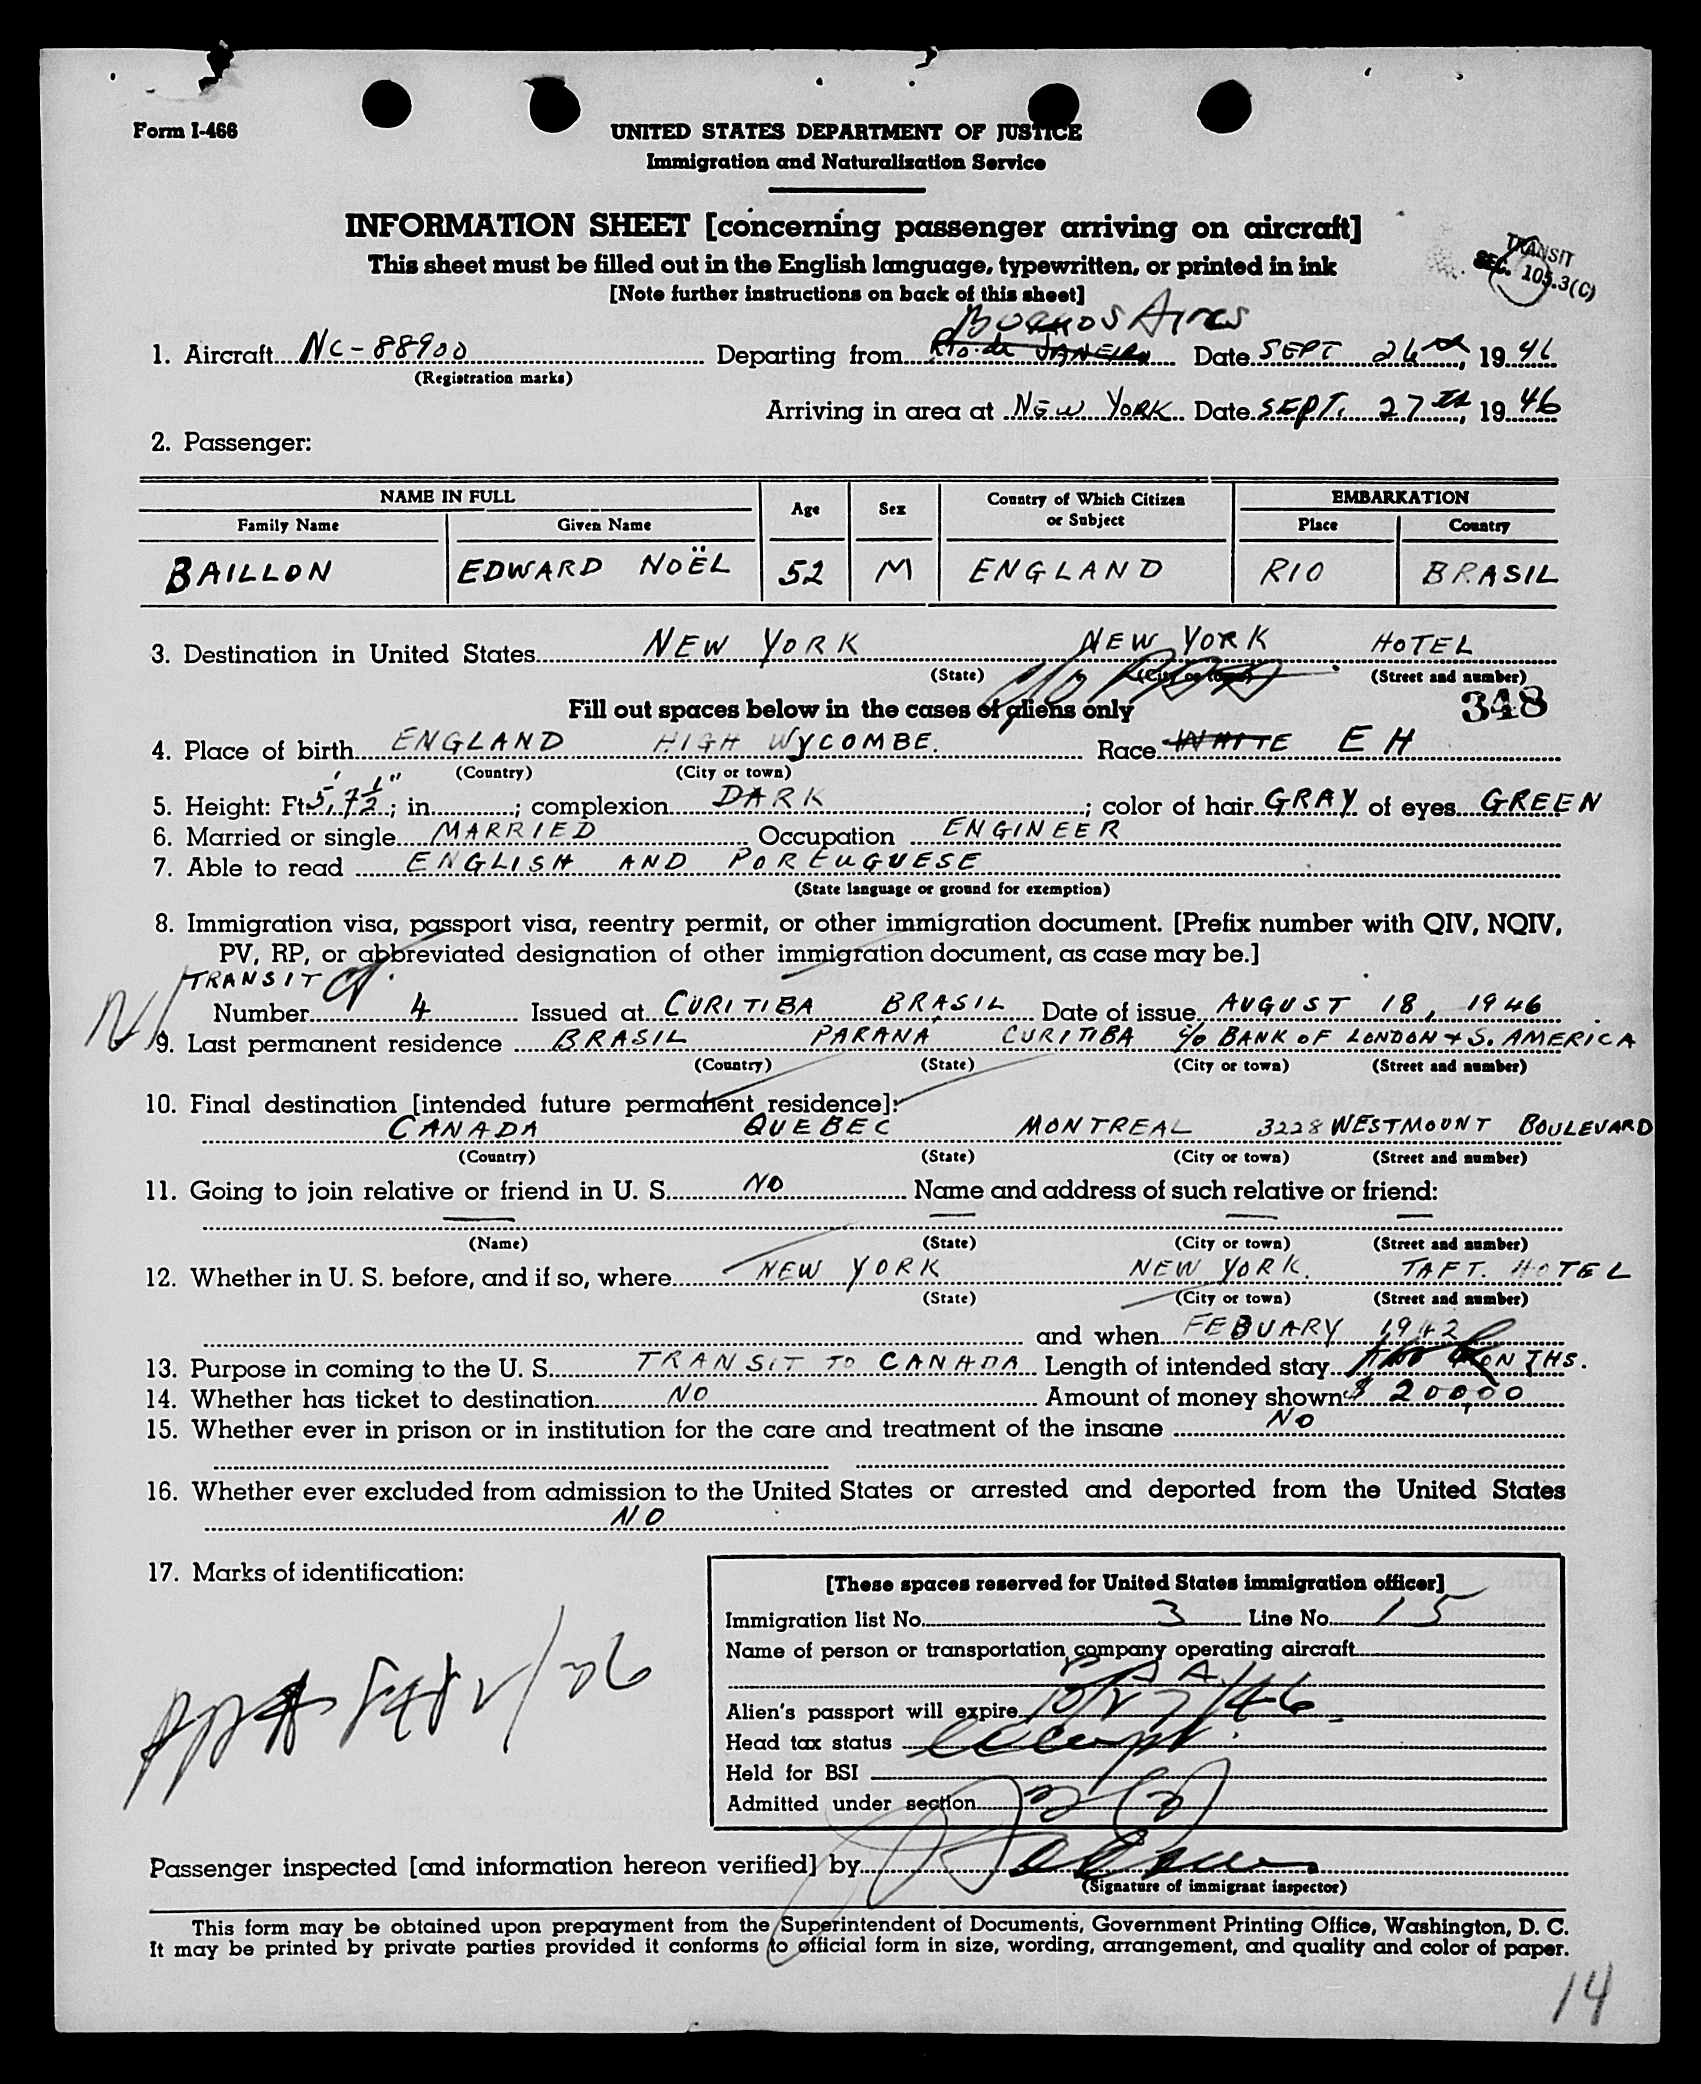 Form I-466
UNITED STATES DEPARTMENT OF JUSTICE
Immigration and Naturalization Service
INFORMATION SHEET [concerning passenger arriving on aircraft]
This sheet must be filled out in the English language, typewritten, or printed in ink
[Note further instructions on back of this sheet]
TRANSIT
SEC. 105.3(C)
Buenos Aires
1. Aircraft NC-88900 Departing from Rio de JANEIRO Date SEPT 26th, 1946
(Registration marks)
Arriving in area at NEW YORK Date SEPT. 27th, 1946
2. Passenger:
NAME IN FULL Age Sex Country of Which Citizen or Subject EMBARKATION
Family Name Given Name Place Country
BAILLON EDWARD NOËL 52 M ENGLAND RIO BRASIL
3. Destination in United States NEW YORK NEW YORK HOTEL
(State) (City or town) (Street and number)
Fill out spaces below in the cases of aliens only 348
4. Place of birth ENGLAND HIGH WYCOMBE. Race WHITE E H
(Country) (City or town)
5. Height: Ft. 5' 7½"; in. ; complexion DARK ; color of hair GRAY of eyes GREEN
6. Married or single MARRIED Occupation ENGINEER
7. Able to read ENGLISH AND POREUGUESE
(State language or ground for exemption)
8. Immigration visa, passport visa, reentry permit, or other immigration document. [Prefix number with QIV, NQIV,
PV, RP, or abbreviated designation of other immigration document, as case may be.]
TRANSIT
Number 4 Issued at CURITIBA BRASIL Date of issue AUGUST 18, 1946
9. Last permanent residence BRASIL PARANA CURITIBA c/o BANK OF LONDON & S. AMERICA
(Country) (State) (City or town) (Street and number)
10. Final destination [intended future permanent residence]:
CANADA QUEBEC MONTREAL 3228 WESTMOUNT BOULEVARD
(Country) (State) (City or town) (Street and number)
11. Going to join relative or friend in U. S. NO Name and address of such relative or friend:
(Name) (State) (City or town) (Street and number)
12. Whether in U. S. before, and if so, where NEW YORK NEW YORK. TAFT. HOTEL
(State) (City or town) (Street and number)
and when FEBUARY 1942
13. Purpose in coming to the U. S. TRANSIT TO CANADA Length of intended stay MONTHS.
14. Whether has ticket to destination NO Amount of money shown $ 200,00
15. Whether ever in prison or in institution for the care and treatment of the insane NO
16. Whether ever excluded from admission to the United States or arrested and deported from the United States
NO
17. Marks of identification:
[These spaces reserved for United States immigration officer]
Immigration list No. 3 Line No. 15
Name of person or transportation company operating aircraft
P A A
Alien's passport will expire 10/27/46
Head tax status exempt
Held for BSI
Admitted under section 3(2)
Passenger inspected [and information hereon verified] by
(Signature of immigrant inspector)
This form may be obtained upon prepayment from the Superintendent of Documents, Government Printing Office, Washington, D. C.
It may be printed by private parties provided it conforms to official form in size, wording, arrangement, and quality and color of paper.
14